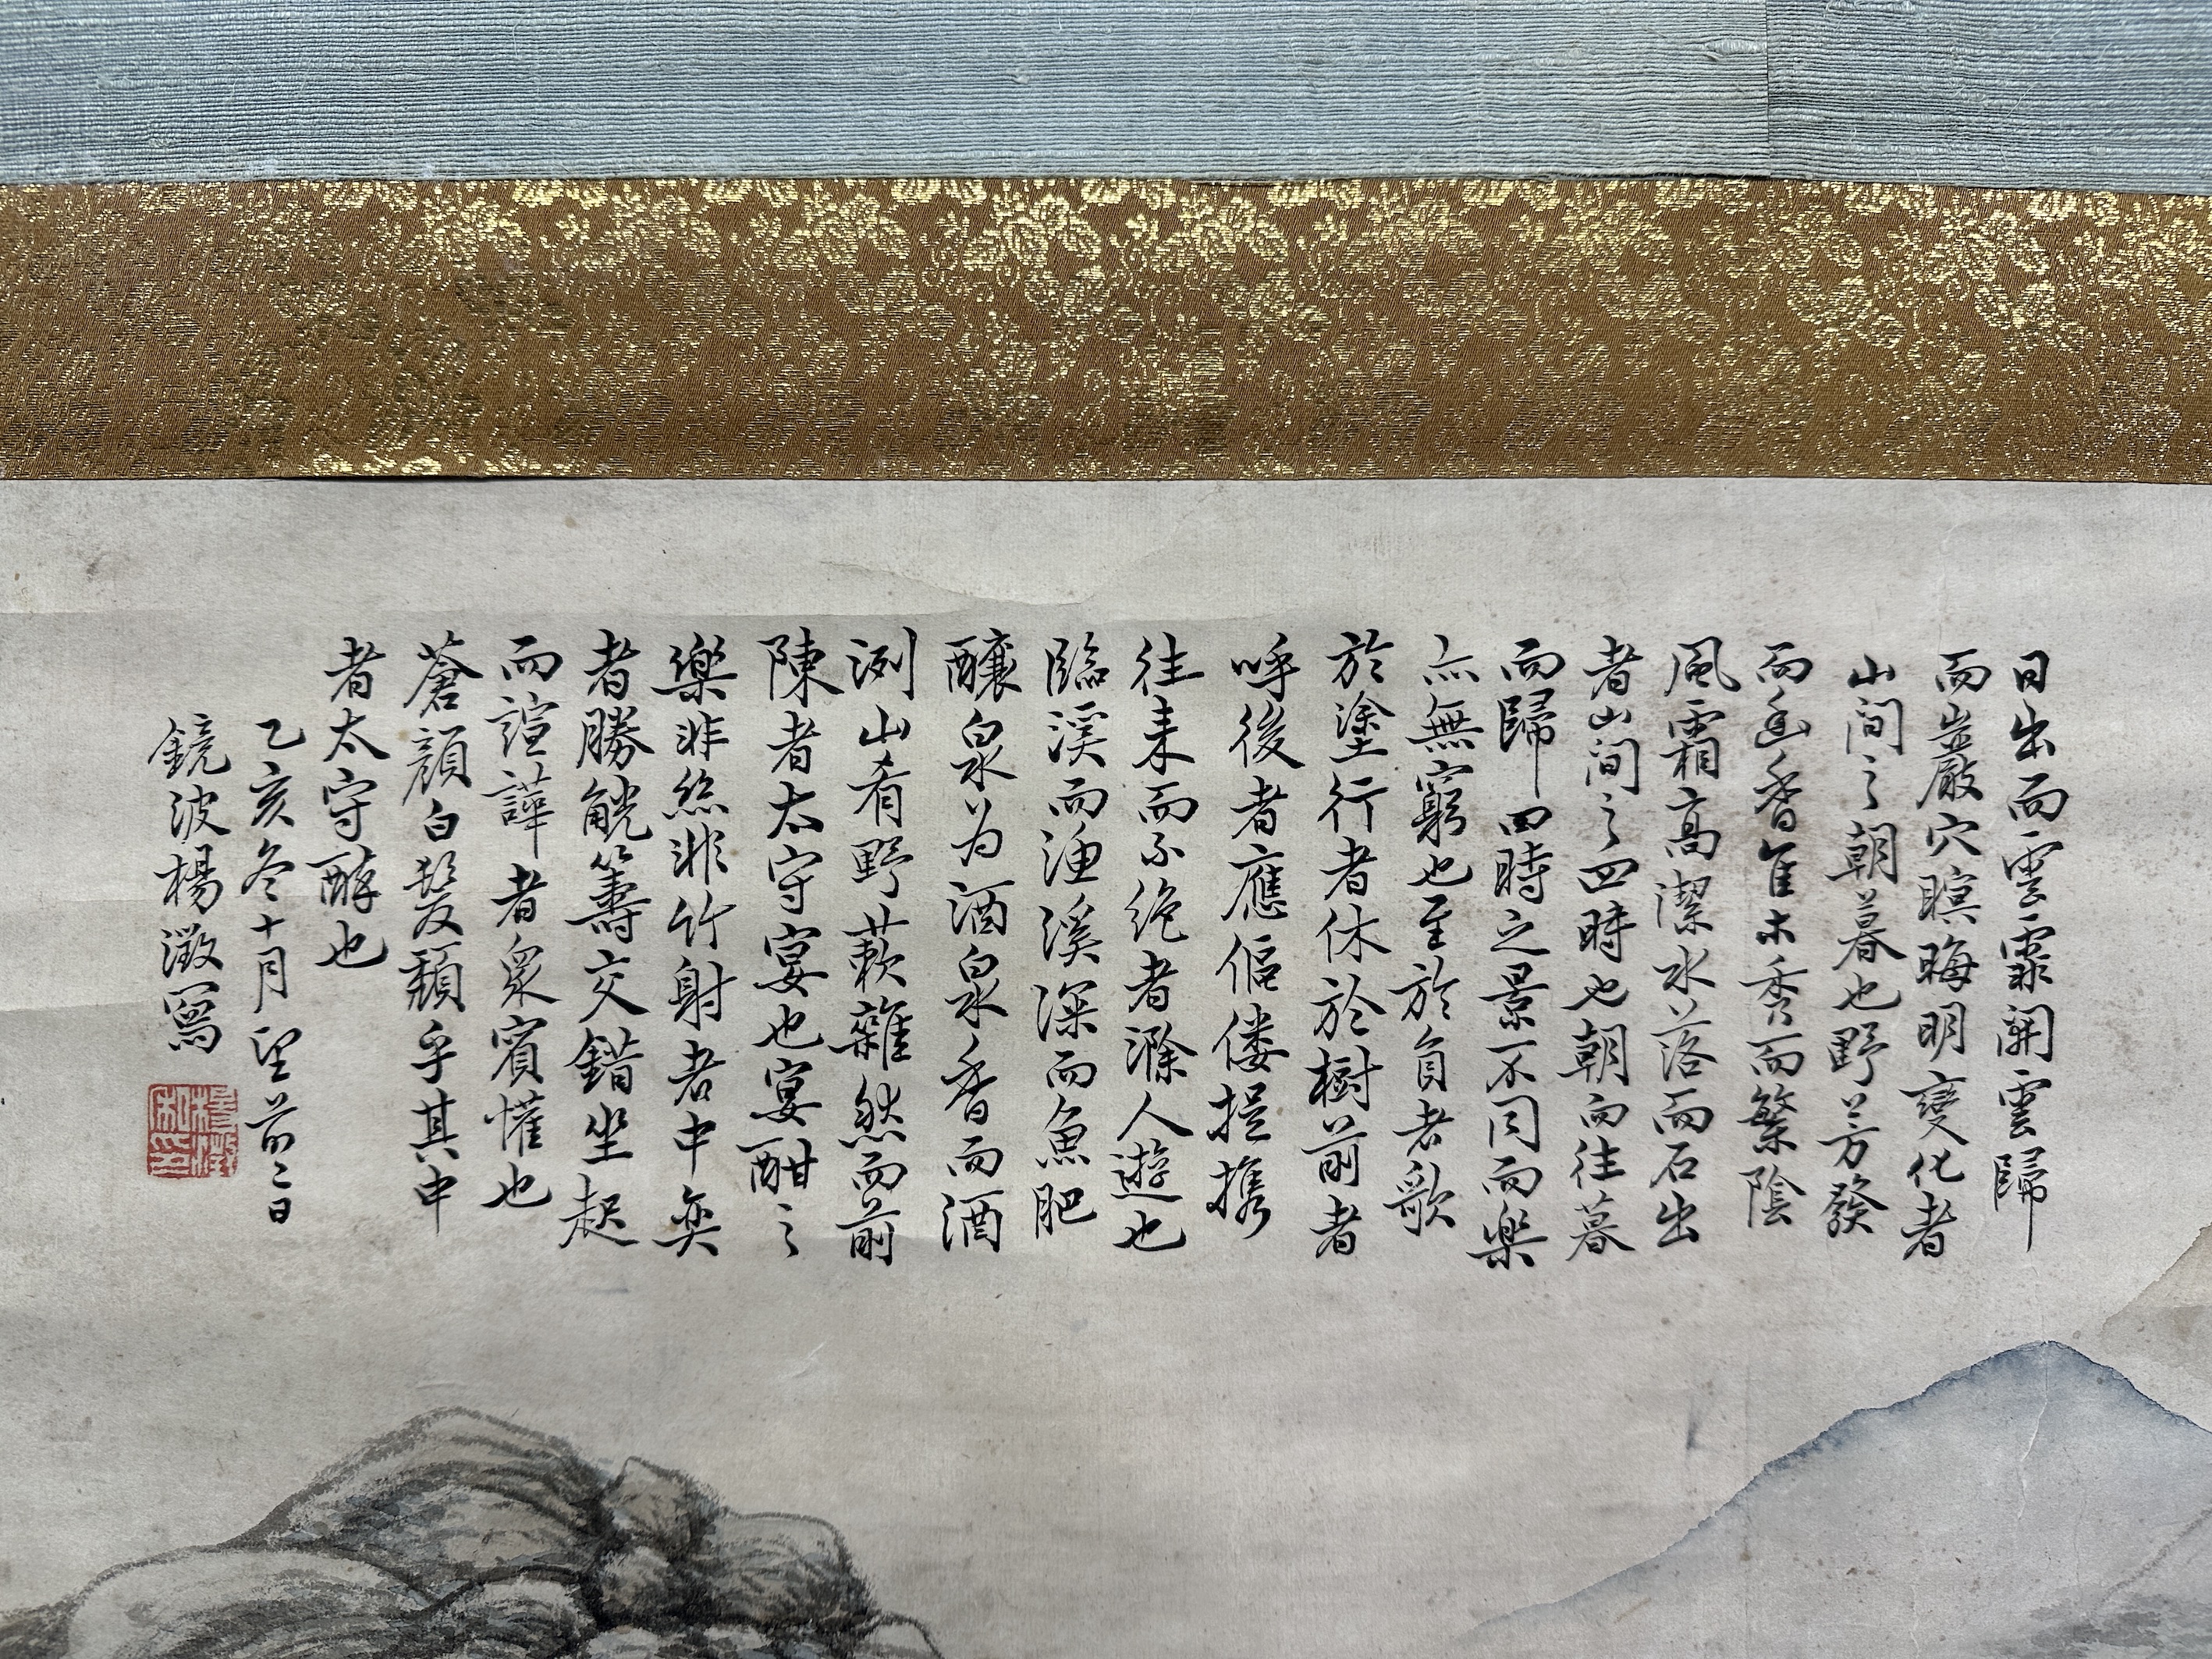 日出而雲霏開雲歸
而巖穴暝晦明變化者
山間之朝暮也野芳發
而幽香隹木秀而繁陰
風霜高潔水落而石出
者山間之四時也朝而往暮
而歸四時之景不同而樂
亦無窮也至於負者歌
於塗行者休於樹前者
呼後者應傴僂提攜
往来而不絶者滁人遊也
臨溪而漁溪深而魚肥
釀泉為酒泉香而酒
洌山肴野蔌雜然而前
陳者太守宴也宴酣之
樂非絲非竹射者中奕
者勝觥籌交錯坐起
而諠譁者衆賓懽也
蒼顔白髮頹乎其中
者太守酔也
乙亥冬十月望前二日
鏡波楊澂寫